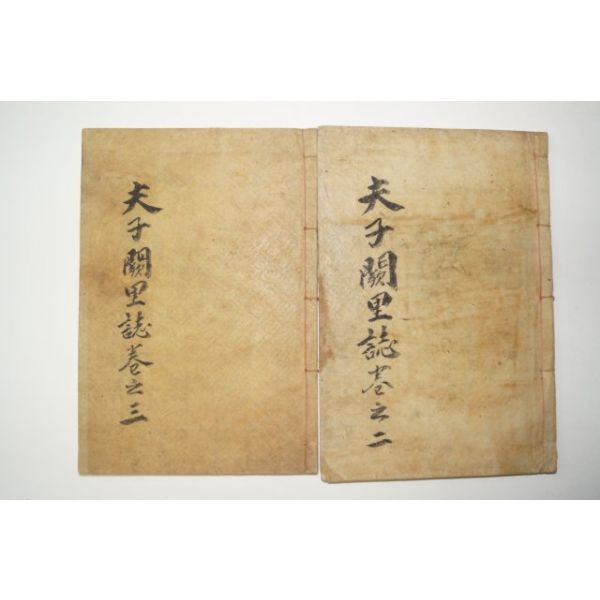 夫子闕里誌卷之二
夫子闕里誌卷之三